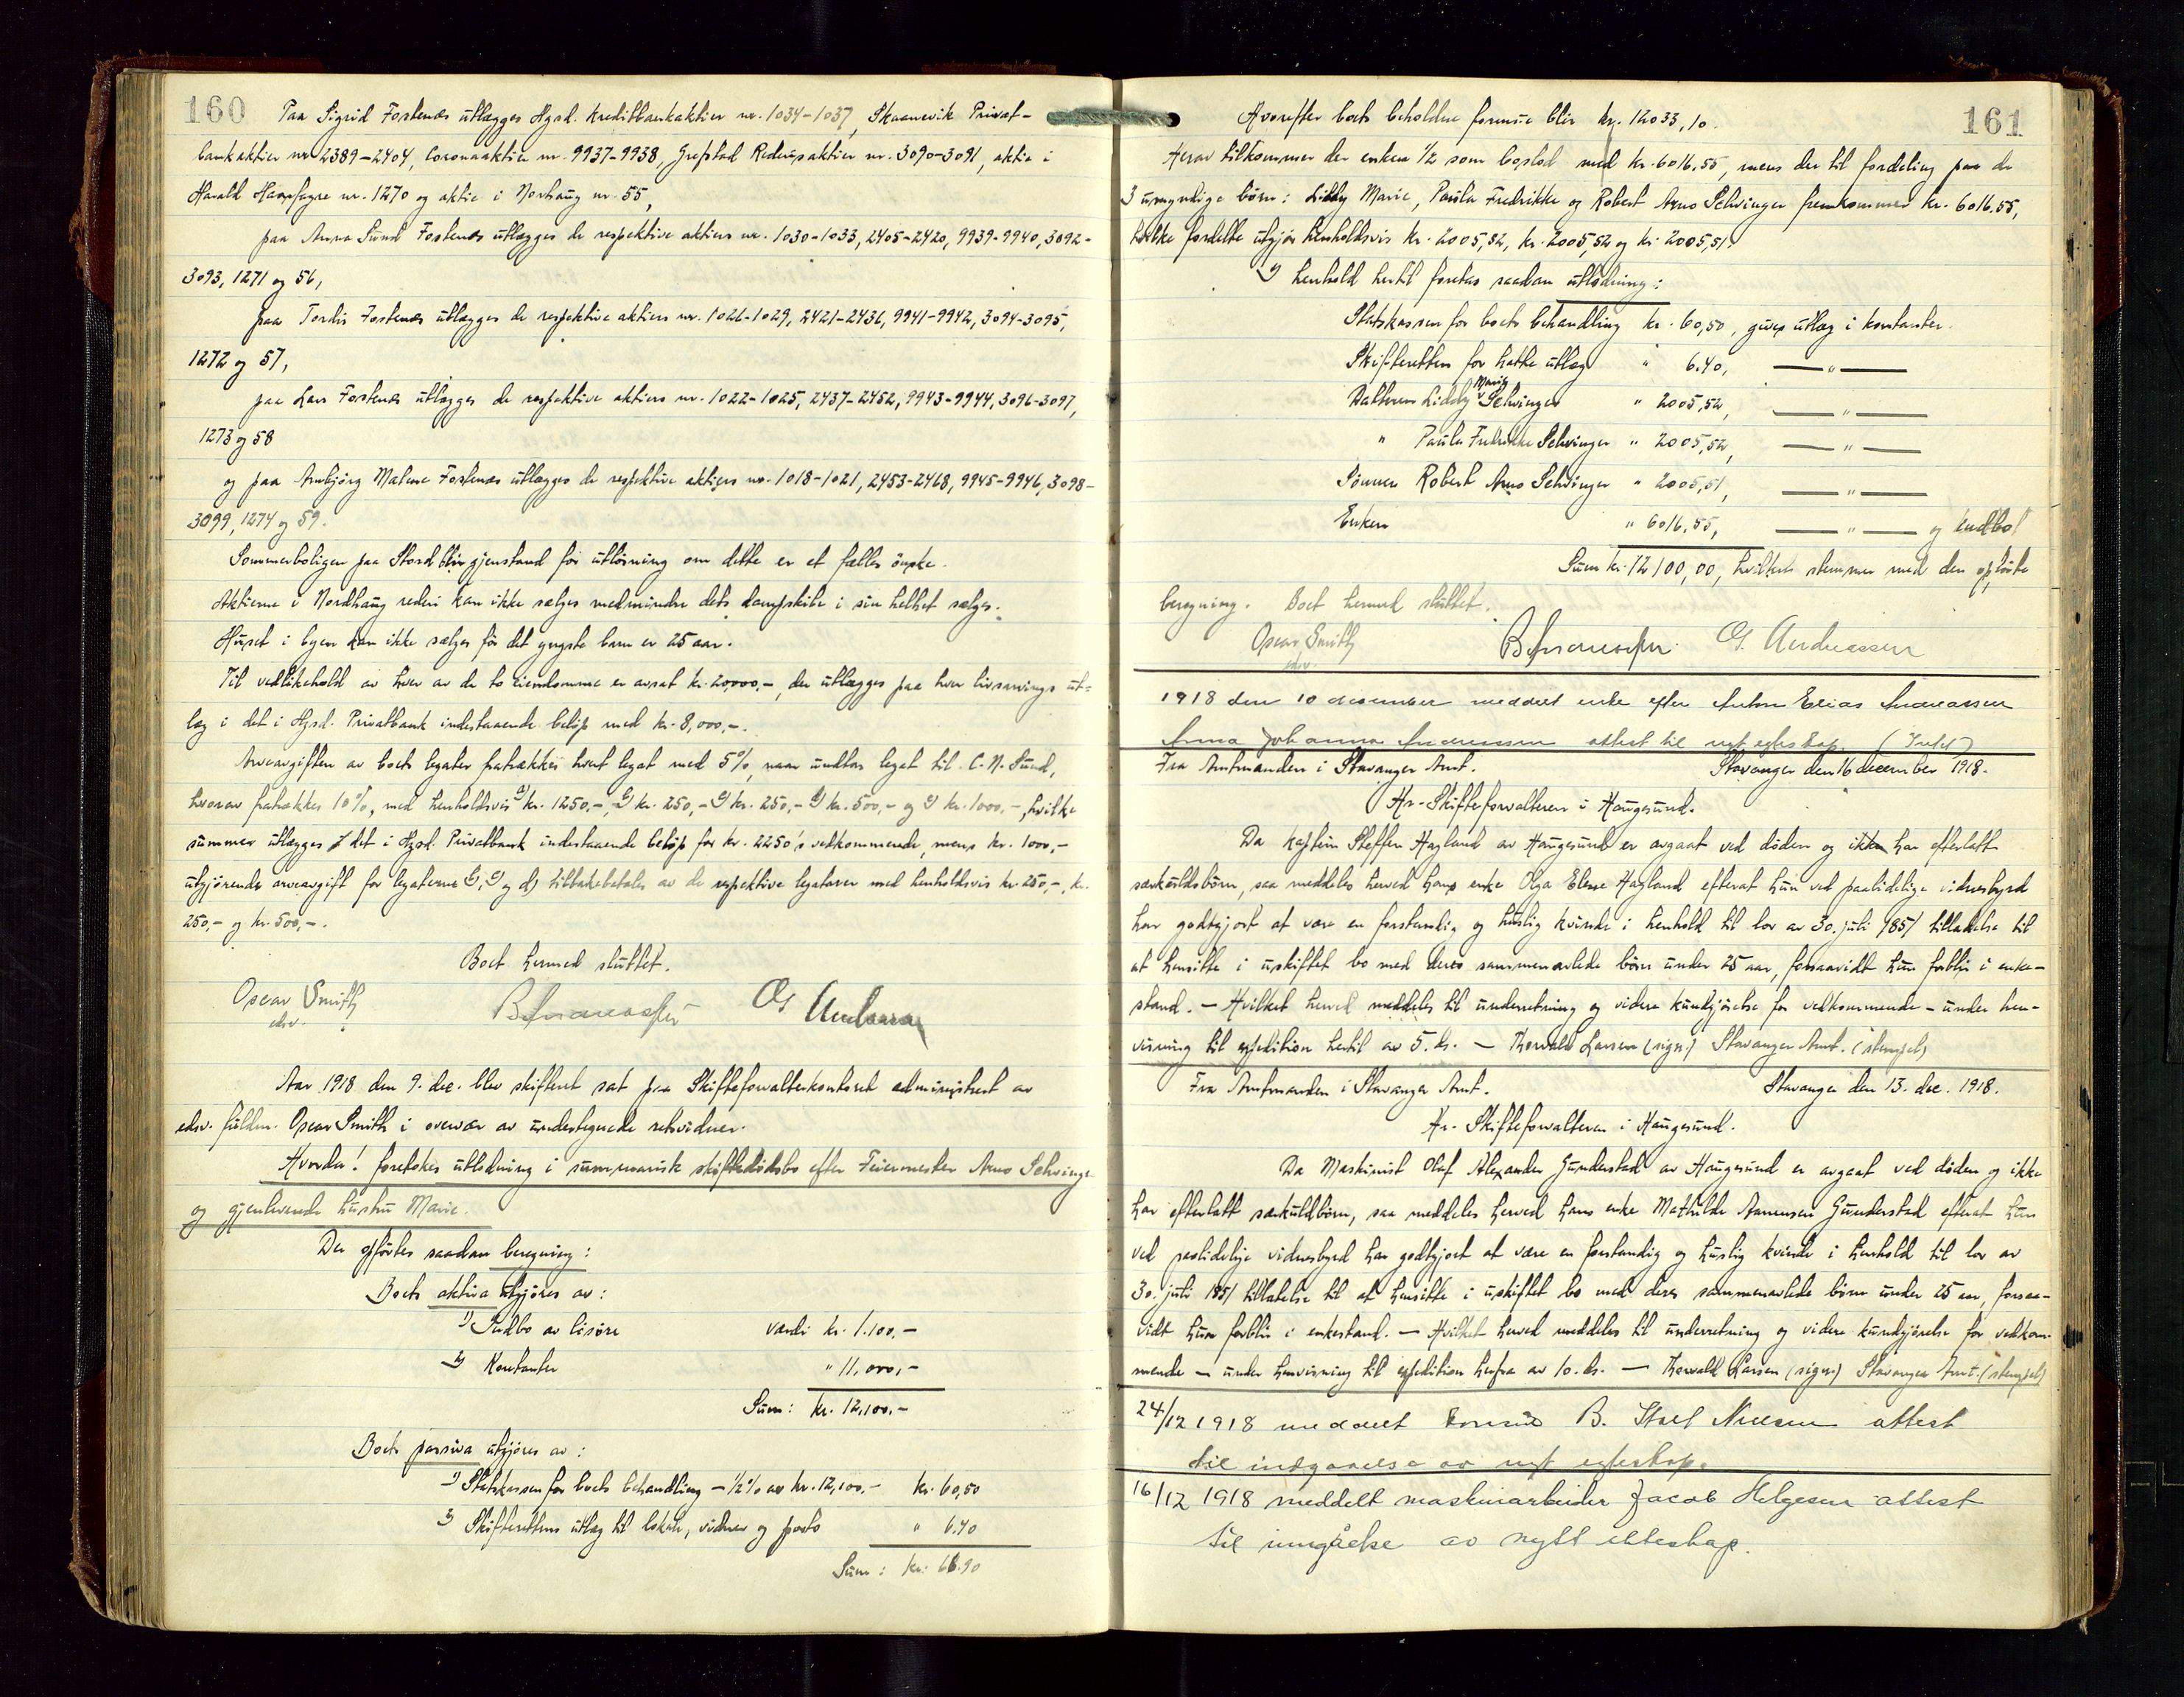 160
Paa Sigrid Fostenæs utlægges Hgsd. Kreditbankaktier nr. 1034-1037, Skaanevik Privat-
bankaktier nr. 2389-2404, Coronaaktier nr. 9937-9938, Grefstad Rederiaktier nr. 3090-3091, aktie i
Harald Haarfagre nr. 1270 og aktie i Norhaug nr. 55,
paa Anna Sund Fostenæs utlægges de respektive aktiers nr. 1030-1033, 2405-2420, 9939-9940, 3092-
3093, 1271 og 56,
paa Tordis Fostenæs utlægges de respektive aktiers nr. 1026-1029, 2421-2436, 9941-9942, 3094-3095,
1272 og 57,
paa Lars Fostenæs utlægges de respektive aktiers nr. 1022-1025, 2437-2452, 9943-9944, 3096-3097,
1273 og 58
og paa Arnbjørg Malene Fostenæs utlægges de respektive aktiers nr. 1018-1021, 2453-2468, 9945-9946, 3098-
3099, 1274 og 59.
Sommerboligen paa Stord blir gjenstand for utløsning om dette er et fælles ønske.
Aktierne i Nordhaug rederi kan ikke sælges medmindre dets dampskibe i sin helhet sælges.
Huset i byen kan ikke sælges før det yngste barn er 25 aar.
Til vedlikehold av hver av de to eiendomme er avsat kr. 20,000,-, der utlægges paa hver livsarvings ut-
læg i det i Hgsd. Privatbank indestaaende beløp med kr. 8,000,-.
Arveavgiften av boets legater fratrækkes hvert legat med 5%, naar undtas legat til C. N. Sund,
hvorav fratrækkes 10%, med henholdsvis a) kr. 1250,-, b) kr. 250,- c) kr. 250,- d) kr. 500,- og e) kr. 1000,-, hvilke
summer utlægges i det i Hgsd. Privatbank indestaaende beløp for kr. 2250's vedkommende, mens kr. 1000,-
utgjørende arveavgift for legaterne b), c) og d) tilbakebetales av de respektive legatarer med henholdsvis kr. 250,-, kr.
250,- og kr. 500,-.
Boet hermed sluttet.
Oscar Smith
edsv.
Aar 1918 den 9. dec. blev skifteret sat paa Skifteforvalterkontoret administrert av
edsv. fuldm. Oscar Smith i overvær av undertegnede retsvidner.
Hvorda! foretokes utlodning i summarisk skiftedødsbo efter Feiermester Arno Schwinger
og gjenlevende hustru Marie.
Der opførtes saadan beregning:
Boets aktiva utgjøres av:
1) Indbo av løsøre værdi kr. 1.100,-
2) Kontanter " 11,000,-
Sum: kr. 12,100,-
Boets passiva utgjøres av:
1) Statskassen for boets behandling - ½% av kr. 12,100,- kr. 60,50
2) Skifterettens utlæg til lokale, vidner og porto " 6.40
Sum: kr. 66.90
161
Hvorefter boets beholdne formue blir kr. 12033,10.
Herav tilkommer der enken ½ som boslod med kr. 6016,55, mens der til fordeling paa de
3 umyndige børn: Liddy Marie, Paula Fredrikke og Robert Arno Schwinger fremkommer kr. 6016,55,
hvilke fordelte utgjør henholdsvis kr. 2005,52, kr. 2005,52 og kr. 2005,51.
I henhold hertil foretas saadan utlodning:
Statskassen for boets behandling kr. 60,50, gives utlæg i kontanter.
Skifteretten for hatte utlæg " 6.40, — " —
Datteren Liddy Marie Schwinger " 2005,52, — " —
" Paula Fredrikke Schwinger " 2005,52, — " —
Sønnen Robert Arno Schwinger " 2005,51, — " —
Enken " 6016,55, — " — og indbo
Sum kr. 12100,00, hvilket stemmer med den opførte
beregning. Boet hermed sluttet.
Oscar Smith
edsv.
O. Andreassen
1918 den 10 desember meddelt enke efter Anton Elias Andreassen
Anna Johanna Andreassen attest til nyt egteskap.
Fra Amtmanden i Stavanger Amt. Stavanger den 16 december 1918.
Hr. Skifteforvalteren i Haugesund.
Da kaptein Steffen Hagland av Haugesund er avgaat ved døden og ikke har efterlatt
særkuldsbørn, saa meddeles herved hans enke Olga Elene Hagland efterat hun ved paalidelige vidnesbyrd
har godtgjort at være en forstandig og huslig kvinde i henhold til lov av 30. juli 1851 tilladelse til
at hensitte i uskiftet bo med deres sammenavlede børn under 25 aar, forsaavidt hun forblir i enke-
stand. - Hvilket herved meddeles til underretning og videre kundgjørelse for vedkommende - under hen-
visning til expedition hertil av 5. ds. - Thorvald Larsen (sign.) Stavanger Amt. (stempel)
Fra Amtmanden i Stavanger Amt. Stavanger den 13. dec. 1918.
Hr. Skifteforvalteren i Haugesund.
Da Maskinist Olaf Alexander Gunderstad av Haugesund er avgaat ved døden og ikke
har efterlatt særkuldbørn, saa meddeles herved hans enke Mathilde Gunderstad efterat hun
ved paalidelige vidnesbyrd har godtgjort at være en forstandig og huslig kvinde i henhold til lov av
30. juli 1851 tillatelse til at hensitte i uskiftet bo med deres sammenavlede børn under 25 aar, forsaa-
vidt hun forblir i enkestand. - Hvilket herved meddeles til underretning og videre kundgjørelse for vedkom-
mende - under henvisning til expedition herfra av 10. ds. - Thorvald Larsen (sign.) Stavanger Amt. (stempel)
24/12 1918 meddelt B. Stolt Nielsen attest
til indgaaelse av nyt egteskap.
16/12 1918 meddelt maskinarbeider Jacob Helgesen attest
til inngåelse av nytt ekteskap.